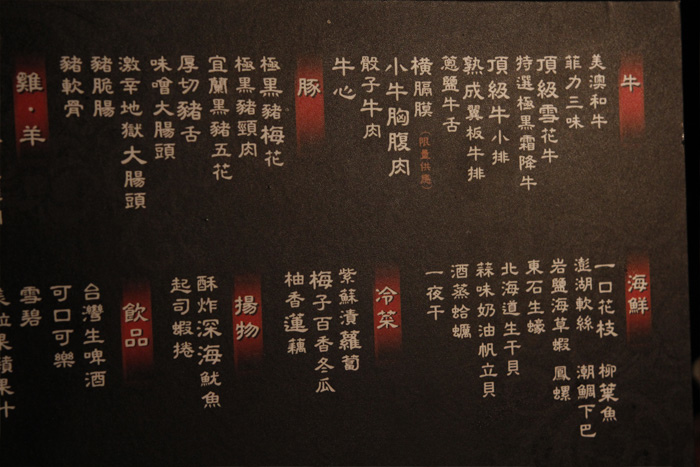 牛
美澳和牛
菲力三味
頂級雪花牛
特選極黑霜降牛
頂級牛小排
熟成翼板牛排
蔥鹽牛舌
橫膈膜（限量供應）
小牛胸腹肉
骰子牛肉
牛心
豚
極黑豬梅花
極黑豬頸肉
宜蘭黑豬五花
厚切豬舌
味噌大腸頭
激辛地獄大腸頭
豬脆腸
豬軟骨
雞·羊
海鮮
一口花枝
柳葉魚
澎湖軟絲
潮鯛下巴
岩鹽海草蝦
鳳螺
東石生蠔
北海道生干貝
蒜味奶油帆立貝
酒蒸蛤蠣
一夜干
冷菜
紫蘇漬蘿蔔
梅子百香冬瓜
柚香蓮藕
揚物
酥炸深海魷魚
起司蝦捲
飲品
台灣生啤酒
可口可樂
雪碧
果蘋果汁